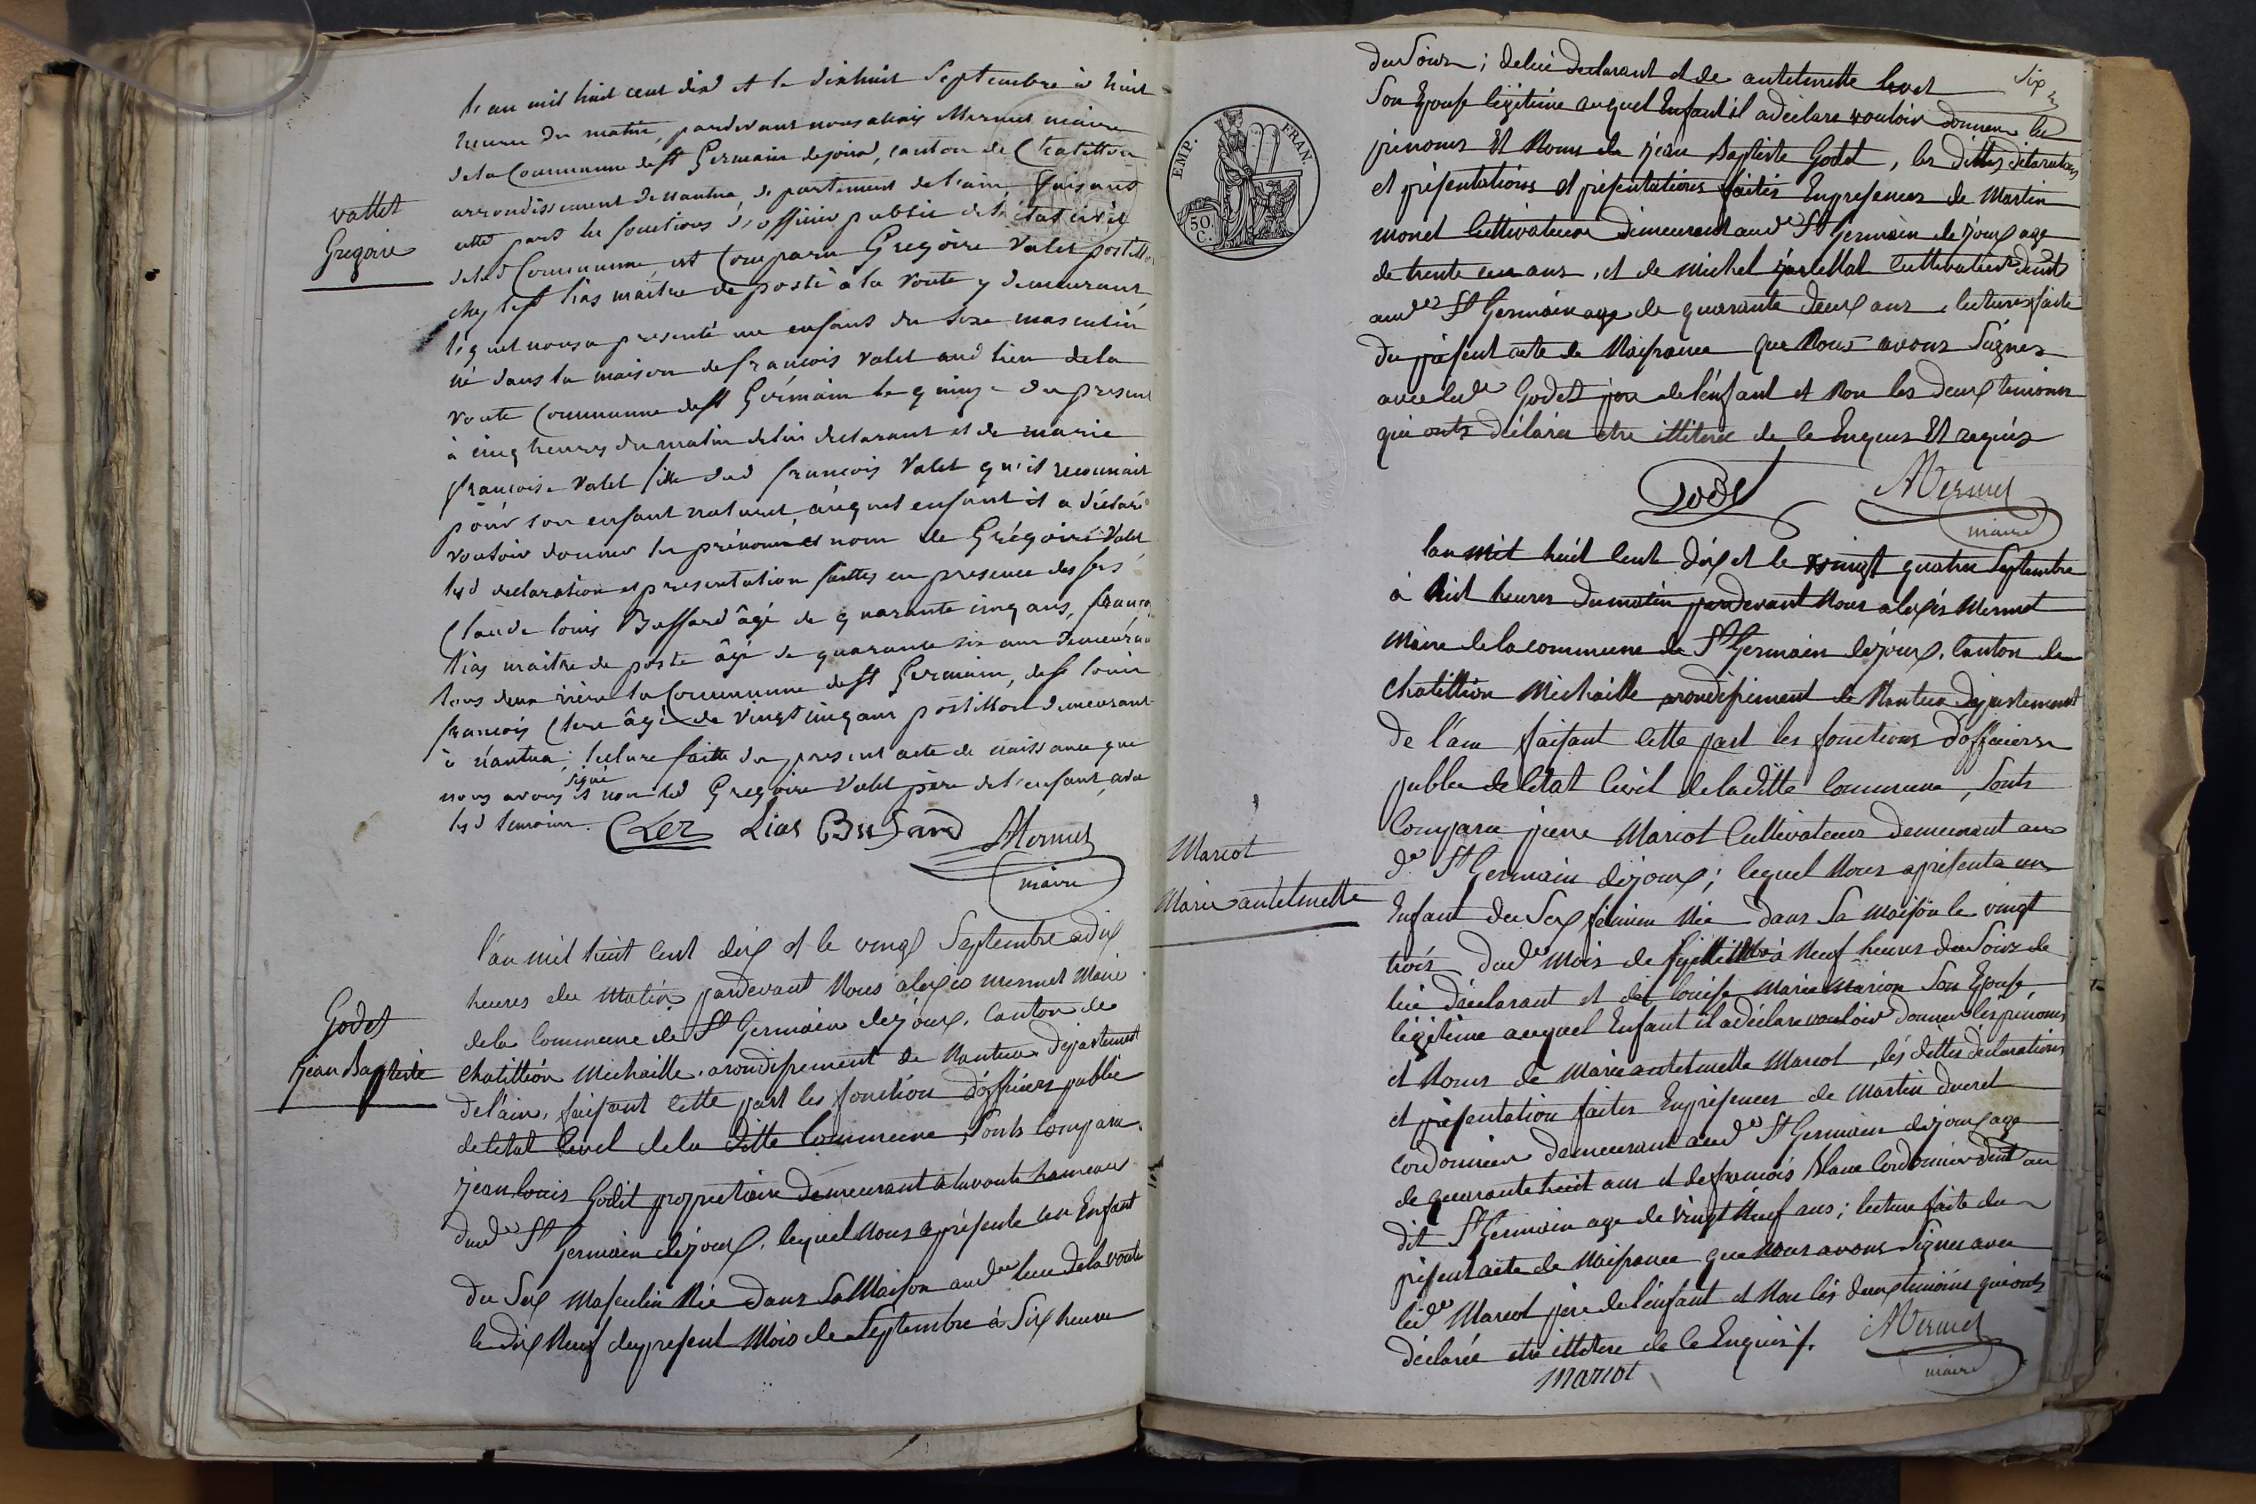 l'an mil huit cent dix et le dixhuit Septembre à huit
heures du matin, pardevant nous alexis Mermet maire
de la Commune de st Germain dejoux, canton de Chatillon
arrondissement de nantua, département de l'ain, faisant
cette part les fonctions d'officier public de l'état civil
de lad Commune, est Comparu Grégoire Valet postillon
chez le sr Lias maitre de poste à la Voute y demeurant
lequel nous a presenté un enfant du sexe masculin
né dans la maison de francois Valet aud lieu de la
Voute Commune de st Germain le quinze du present
à cinq heures du matin de lui declarant et de marie
francoise Valet fille dud francois Valet qu'il reconnait
pour son enfant naturel, auquel enfant il a déclaré
vouloir donner les prénom et nom de Grégoire Valet
lesd declaration et presentation faittes en presence des srs
Claude louis Buffard âgé de quarante cinq ans, franco
Lias maître de poste âgé de quarante six ans demeuran
tous deux rière la Commune de st Germain, de sr louis
francois Clerc âgé de Vingt cinq ans postillon demeurant
à nantua; lecture faitte du present acte de naissance que
signé
nous avons et non led Gregoire Valet père de l'enfant, avec
lesd temoins. Clerc Lias Bussard AMermet
maire
vallet
Gregoire
l'an mil huit cent dix et le vingt Septembre a dix
heures du matin pardevant Nous alexis mermet Maire
de la Commune de St Germain dejoux, Canton de
Chatillion Michaille, arondissement de Nantua Departement
de l'ain, faisant cette part les fonction d'officiers publie
de letat Civil de la ditte Commune, Sonts Comparu
jean louis Godet proprietaire demeurant a lavoute hameau
dud St Germain dejoux, lequel Nous a présente un Enfant
du Sex Masculin Née dans Sa Maison aud lieu de la voute
le dix Neuf du present Mois de Septembre à Six heures
Godet
jean Baptiste
Six
du Soir; de lui declarant et de antelmette
Son Epouse légitime auquel Enfant il a déclare vouloir donner les
prénoms Et Noms de jean Baptiste Godet, les dittes déclarations
et présentations et présentations faites En presences de Martin
monet Cultivateur Demeurant aud St Germain dejoux age
de trente ans, et de Michel Cultivateur
aud St Germain age de quarante deux ans, lecture faite
Du présent acte de Naissance que Nous avons Signer
avec led Godet pere de l'enfant et Non les deux temoins
qui onts déclarer etre illiteree de Ce Enquis Et requis
Godet AMermet
maire
lan mil huit Cent dix et le vingt quatre Septembre
à huit heures du matin pardevant Nous alexis Mermet
Maire de la commune de St Germain dejoux, Canton de
Chatillion Michaille arondissement de Nantua Departement
de l'ain faisant Cette part les fonctions d'officiers
publie de l'état Civil de la ditte Commune, Sonts
Comparu pierre Mariot Cultivateur demeurant au
dt St Germain dejoux; lequel Nous a présenta un
Enfant du Sex féminin Née dans Sa Maison le vingt
trois dud Mois de à Neuf heures du Soir de
lui déclarant et de louise Marie Marion Son Epouse
légitime auquel Enfant il a déclare vouloir donner les prénoms
et Noms de Marie antelmette Mariot, les dittes déclarations
et présentation faites En présences de Martin ducret
Cordonnier demeurant aud St Germain dejoux age
de quarante huit ans et de francois Blanc Cordonnier au
dit St Germain age de vingt Neuf ans; lecture faite du
présent acte de Naissance que Nous avons Signer avec
led Mariot père de l'enfant et Non les deux témoins qui onts
déclarée etre illitere de Ce Enquis. AMermet
Mariot maire
Mariot
Marie antelmette
EMP. FRAN.
50 C.